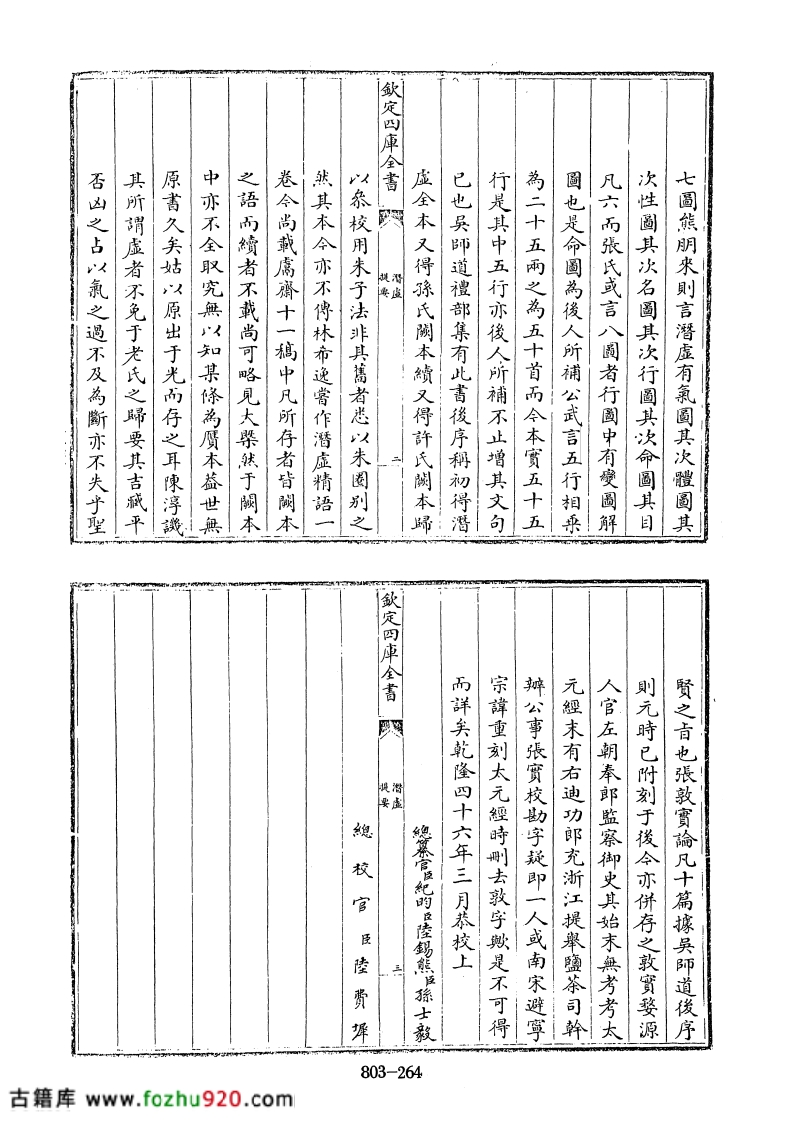 七圖熊朋來則言潛虛有氣圖其次體圖其
次性圖其次名圖其次行圖其次命圖其目
凡六而張氏或言八圖者行圖中有變圖解
圖也是命圖為後人所補公武言五行相乗
為二十五兩之為五十首而今本實五十五
行是其中五行亦後人所補不止增其文句
已也吳師道禮部集有此書後序稱初得潛
虛全本又得孫氏闕本續又得許氏闕本歸
欽定四庫全書
潛虛
提要
二
以叅校用朱子法非其舊者悉以朱圈别之
然其本今亦不傳林希逸嘗作潛虛精語一
卷今尚載鬳齋十一稿中凡所存者皆闕本
之語而續者不載尚可略見大槩然于闕本
中亦不全取究無以知某條為贋本益世無
原書久矣姑以原出于光而存之耳陳淳譏
其所謂虛者不免于老氏之歸要其吉臧平
否凶之占以氣之過不及為斷亦不失乎聖
賢之旨也張敦實論凡十篇據吳師道後序
則元時已附刻于後今亦併存之敦實婺源
人官左朝奉郎監察御史其始末無考考太
元經末有右迪功郎充浙江提舉鹽茶司幹
辦公事張實校勘字疑即一人或南宋避寧
宗諱重刻太元經時刪去敦字歟是不可得
而詳矣乾隆四十六年三月恭校上
總纂官臣紀昀臣陸錫熊臣孫士毅
欽定四庫全書
潛虛
提要
三
總校官臣陸費墀
803-264
古籍库 www.fozhu920.com